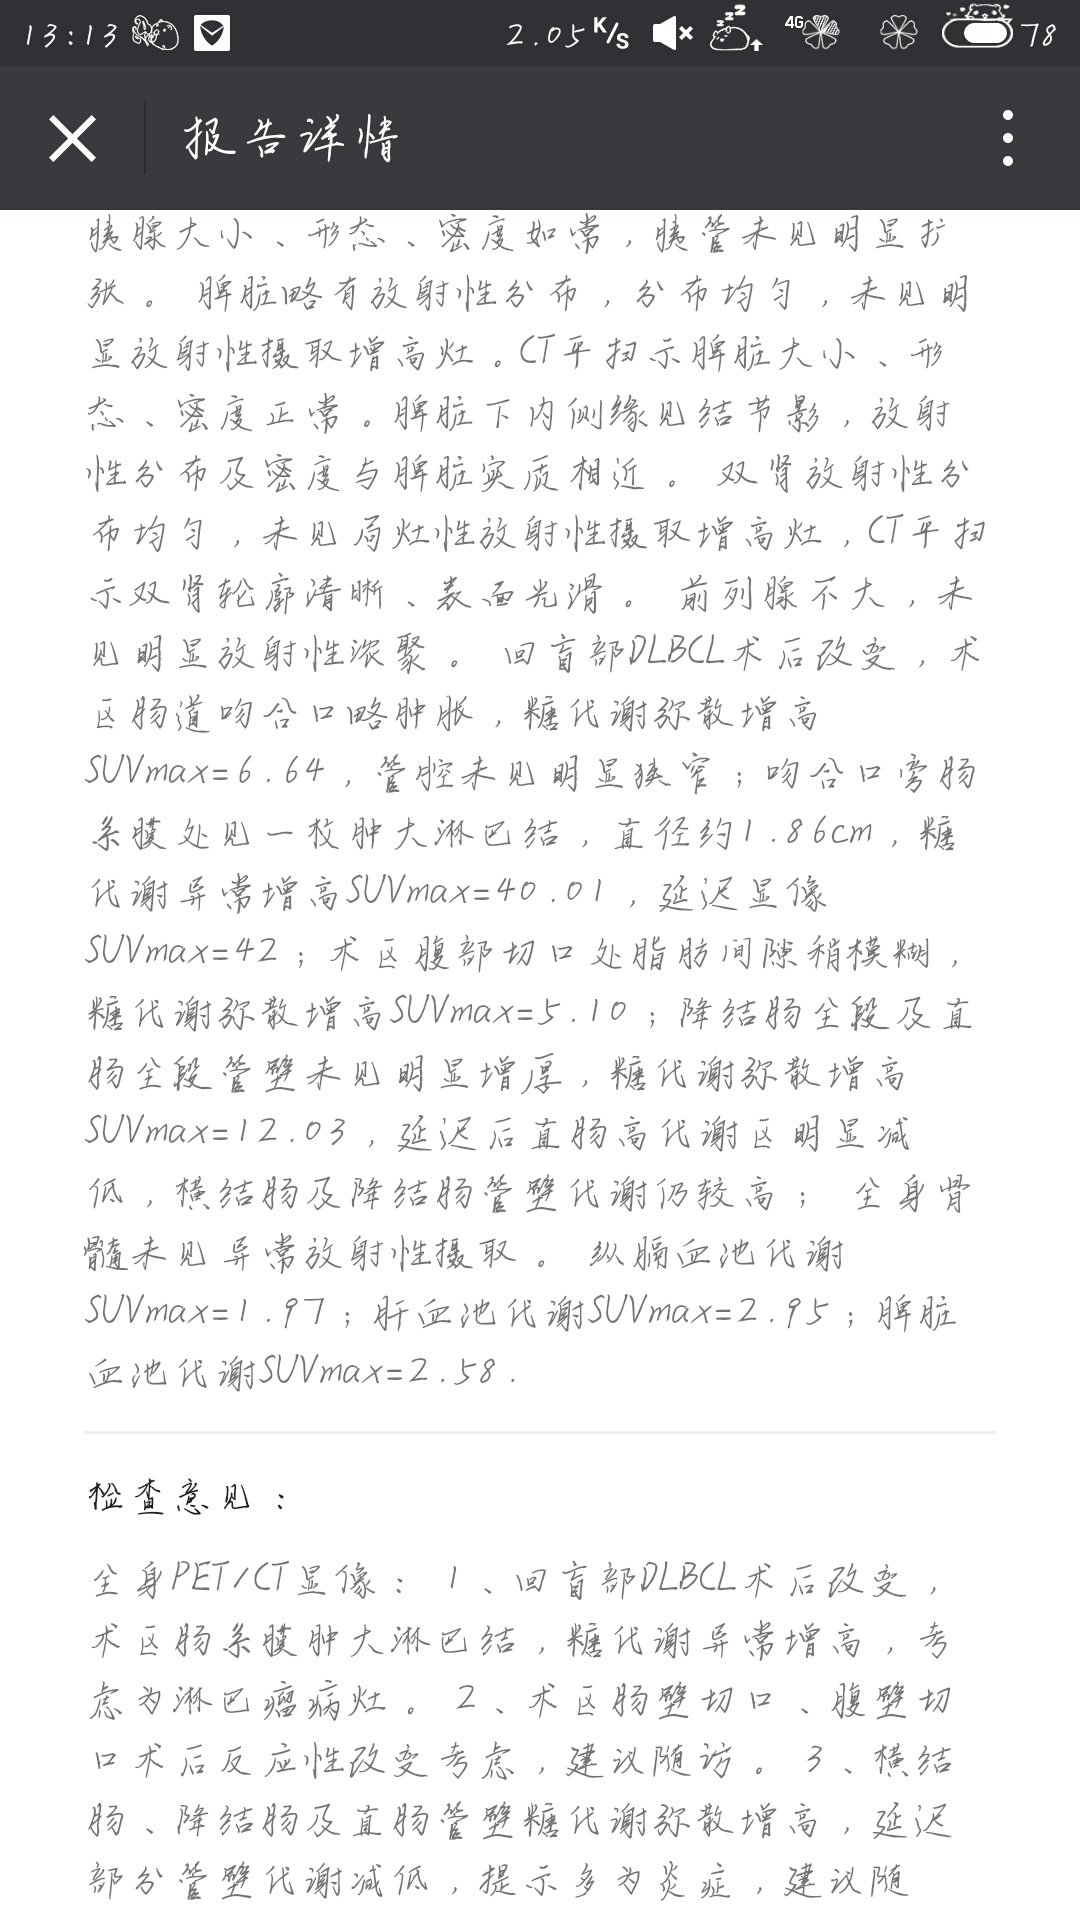 13:13
2.05K/s
4G
78
报告详情
胰腺大小、形态、密度如常，胰管未见明显扩
张。 脾脏略有放射性分布，分布均匀，未见明
显放射性摄取增高灶。CT平扫示脾脏大小、形
态、密度正常。脾脏下内侧缘见结节影，放射
性分布及密度与脾脏实质相近。 双肾放射性分
布均匀，未见局灶性放射性摄取增高灶，CT平扫
示双肾轮廓清晰、表面光滑。 前列腺不大，未
见明显放射性浓聚。 回盲部DLBCL术后改变，术
区肠道吻合口略肿胀，糖代谢弥散增高
SUVmax=6.64，管腔未见明显狭窄；吻合口旁肠
系膜处见一枚肿大淋巴结，直径约1.86cm，糖
代谢异常增高SUVmax=40.01，延迟显像
SUVmax=42；术区腹部切口处脂肪间隙稍模糊，
糖代谢弥散增高SUVmax=5.10；降结肠全段及直
肠全段管壁未见明显增厚，糖代谢弥散增高
SUVmax=12.03，延迟后直肠高代谢区明显减
低，横结肠及降结肠管壁代谢仍较高； 全身骨
髓未见异常放射性摄取。 纵膈血池代谢
SUVmax=1.97；肝血池代谢SUVmax=2.95；脾脏
血池代谢SUVmax=2.58.
检查意见：
全身PET/CT显像： 1、回盲部DLBCL术后改变，
术区肠系膜肿大淋巴结，糖代谢异常增高，考
虑为淋巴瘤病灶。 2、术区肠壁切口、腹壁切
口术后反应性改变考虑，建议随访。 3、横结
肠、降结肠及直肠管壁糖代谢弥散增高，延迟
部分管壁代谢减低，提示多为炎症，建议随